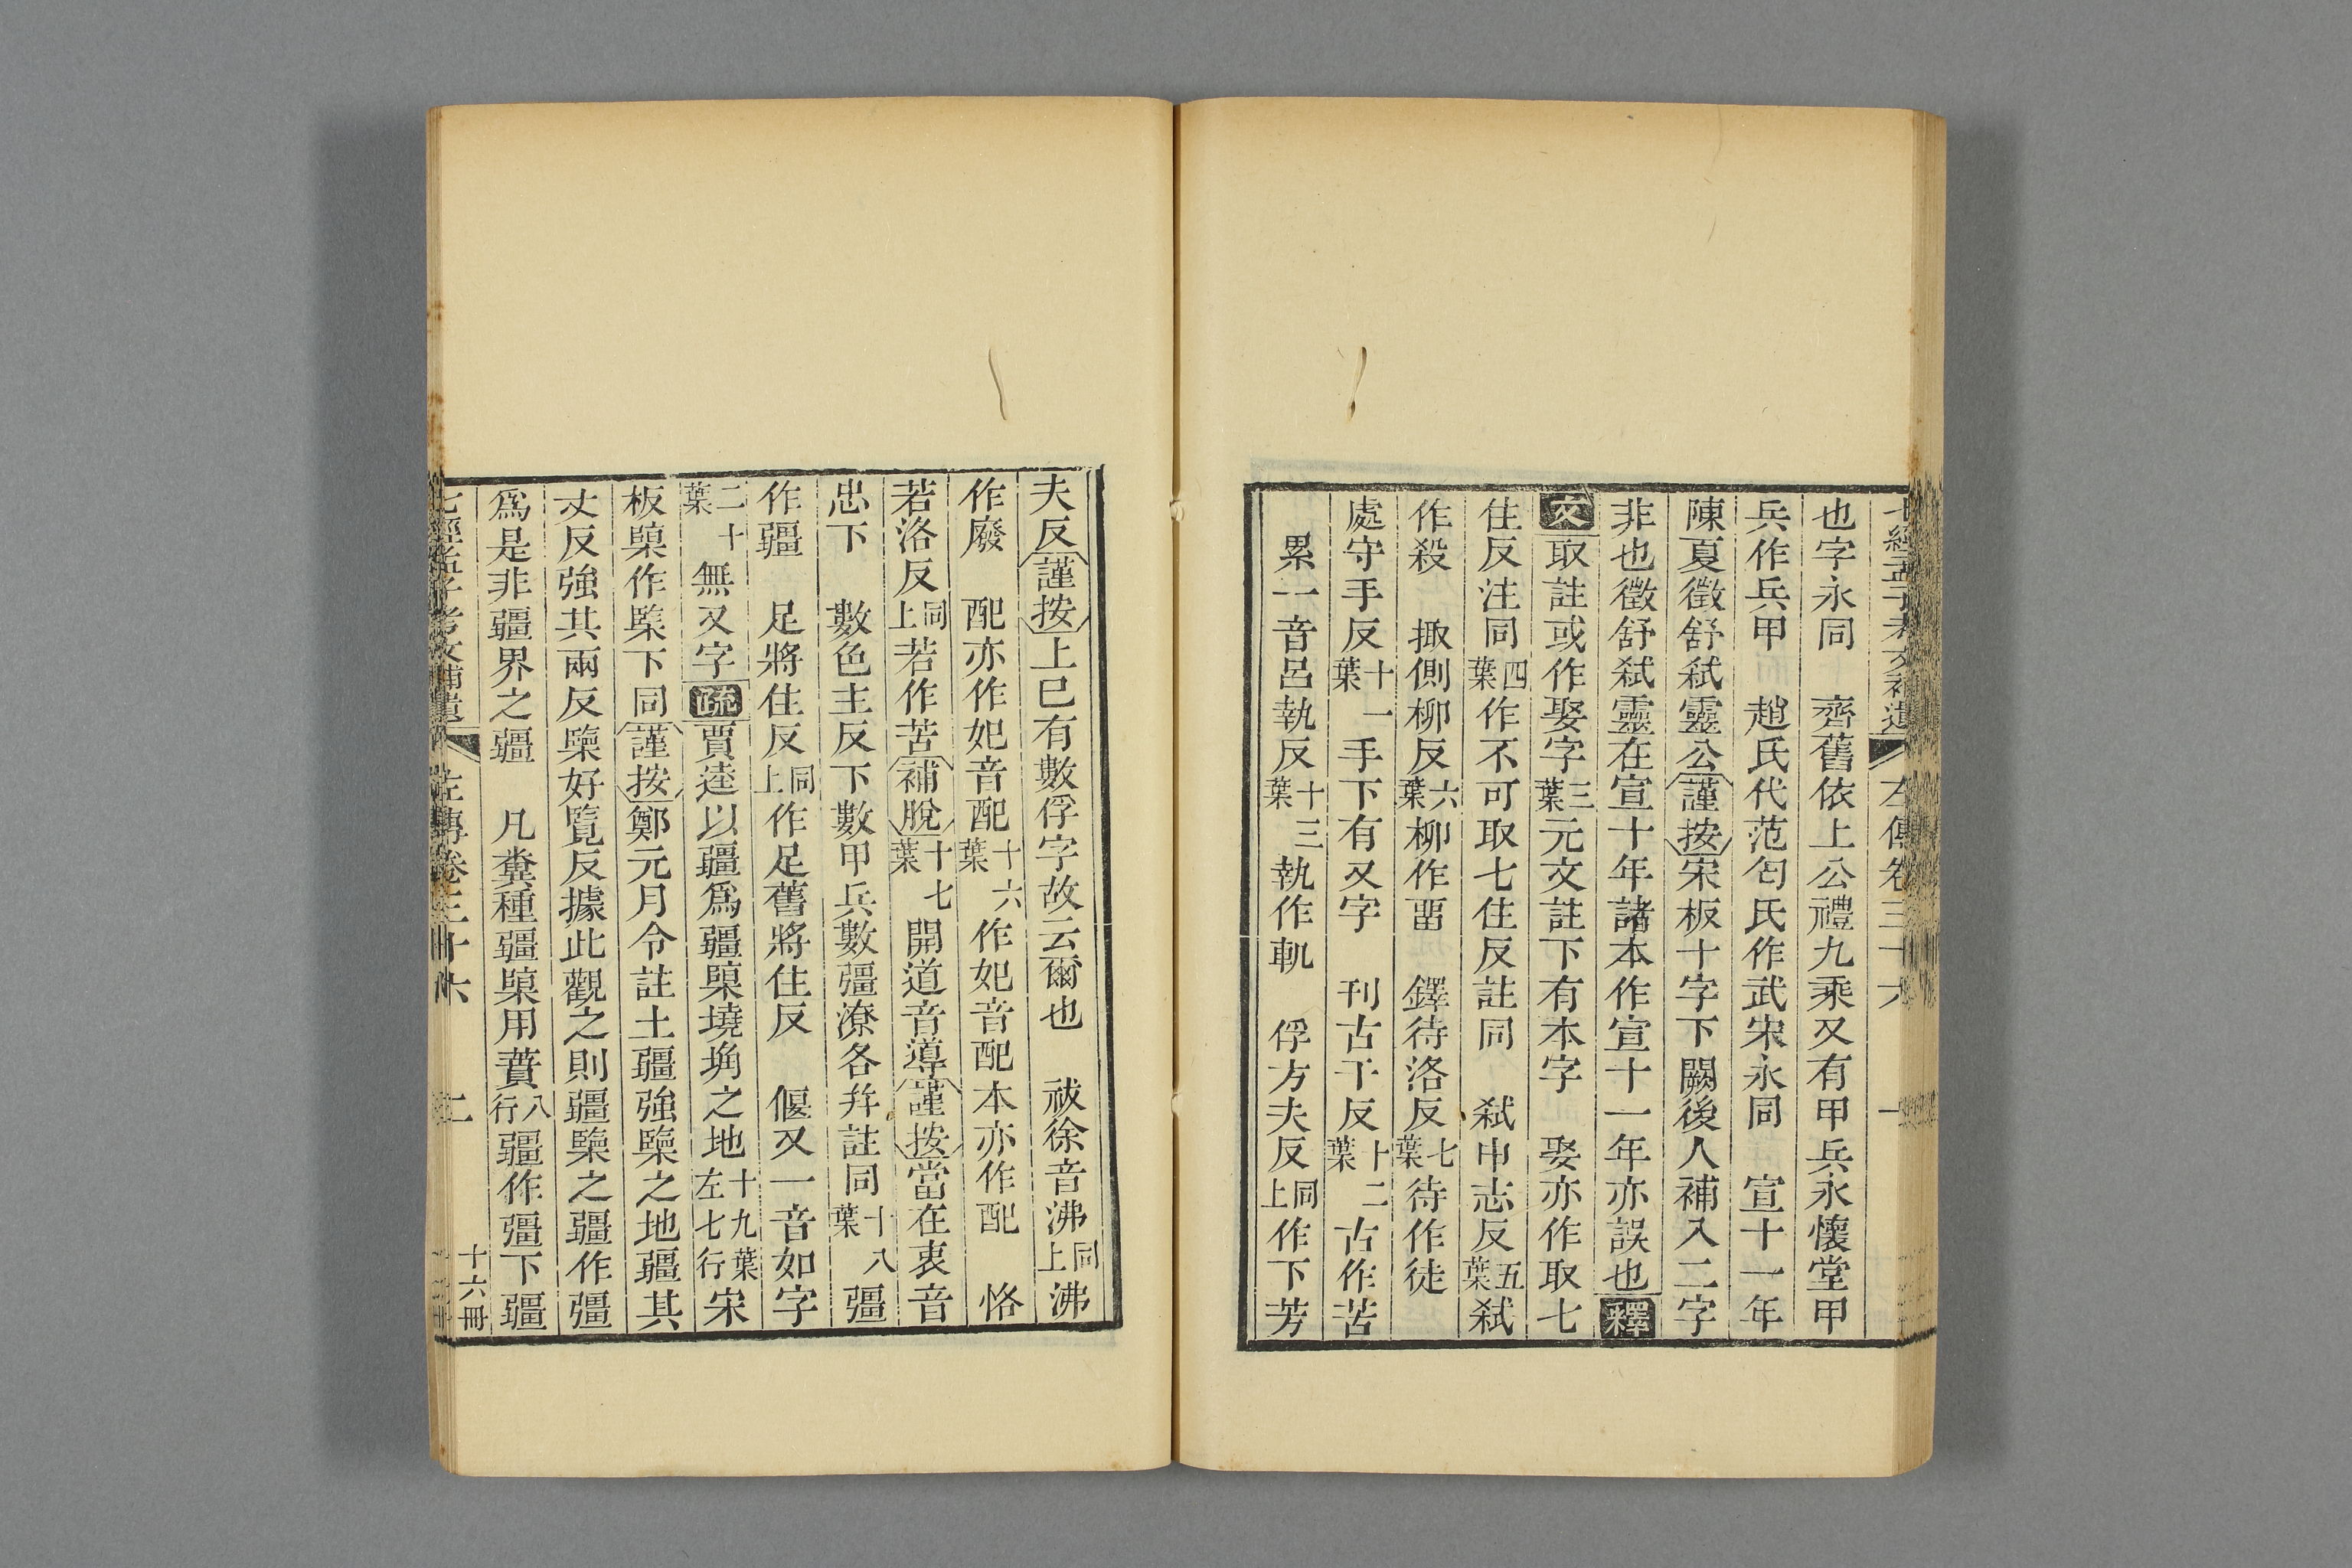 七經孟子考文補遺 左傳卷三十六 一
也字永同 齊舊依上公禮九乘又有甲兵永懷堂甲
兵作兵甲 趙氏代范匄氏作武宋永同 宣十一年
陳夏徵舒弒靈公謹按宋板十字下闕後人補入二字
非也徵舒弒靈在宣十年諸本作宣十一年亦誤也釋
文取註或作娶字三葉元文註下有本字 娶亦作取七
住反注同四葉作不可取七住反註同 弒申志反五葉弒
作殺 掫側柳反六葉柳作畱 鐸待洛反七葉待作徒
處守手反十一葉手下有又字 刊古干反十二葉古作苦
累一音呂執反十三葉執作軌 俘方夫反同上作下芳
夫反謹按上巳有數俘字故云爾也 祓徐音沸同上沸
作廢 配亦作妃音配十六葉作妃音配本亦作配 恪
若洛反同上若作苦補脫十七葉開道音導謹按當在衷音
忠下 數色主反下數甲兵數疆潦各幷註同十八葉疆
作疆 足將住反同上作足舊將住反 偃又一音如字
二十葉無又字疏賈逵以疆爲疆㯺墝埆之地十九葉左七行宋
板㯺作檃下同謹按鄭元月令註土疆強檃之地疆其
丈反強其兩反檃好覽反據此觀之則疆檃之疆作彊
爲是非疆界之疆 凡糞種疆㯺用蕡八行疆作彊下疆
七經孟子考文補遺 左傳卷三十六 二 十六冊